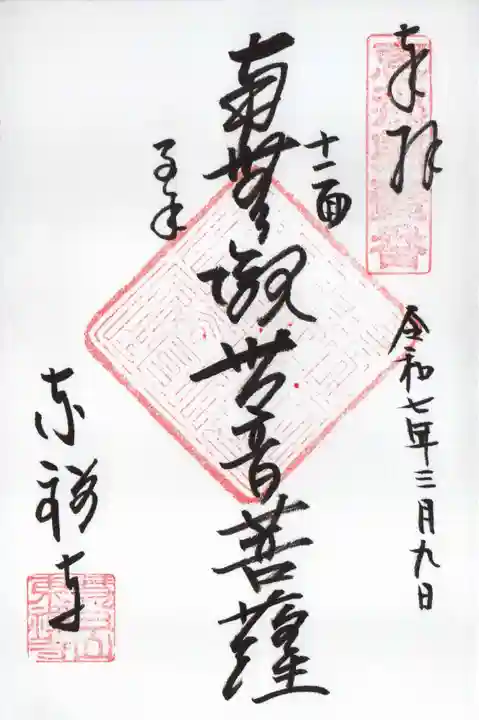 奉拝
令和七年三月九日
十一面
南無観世音菩薩
千手
東祥寺